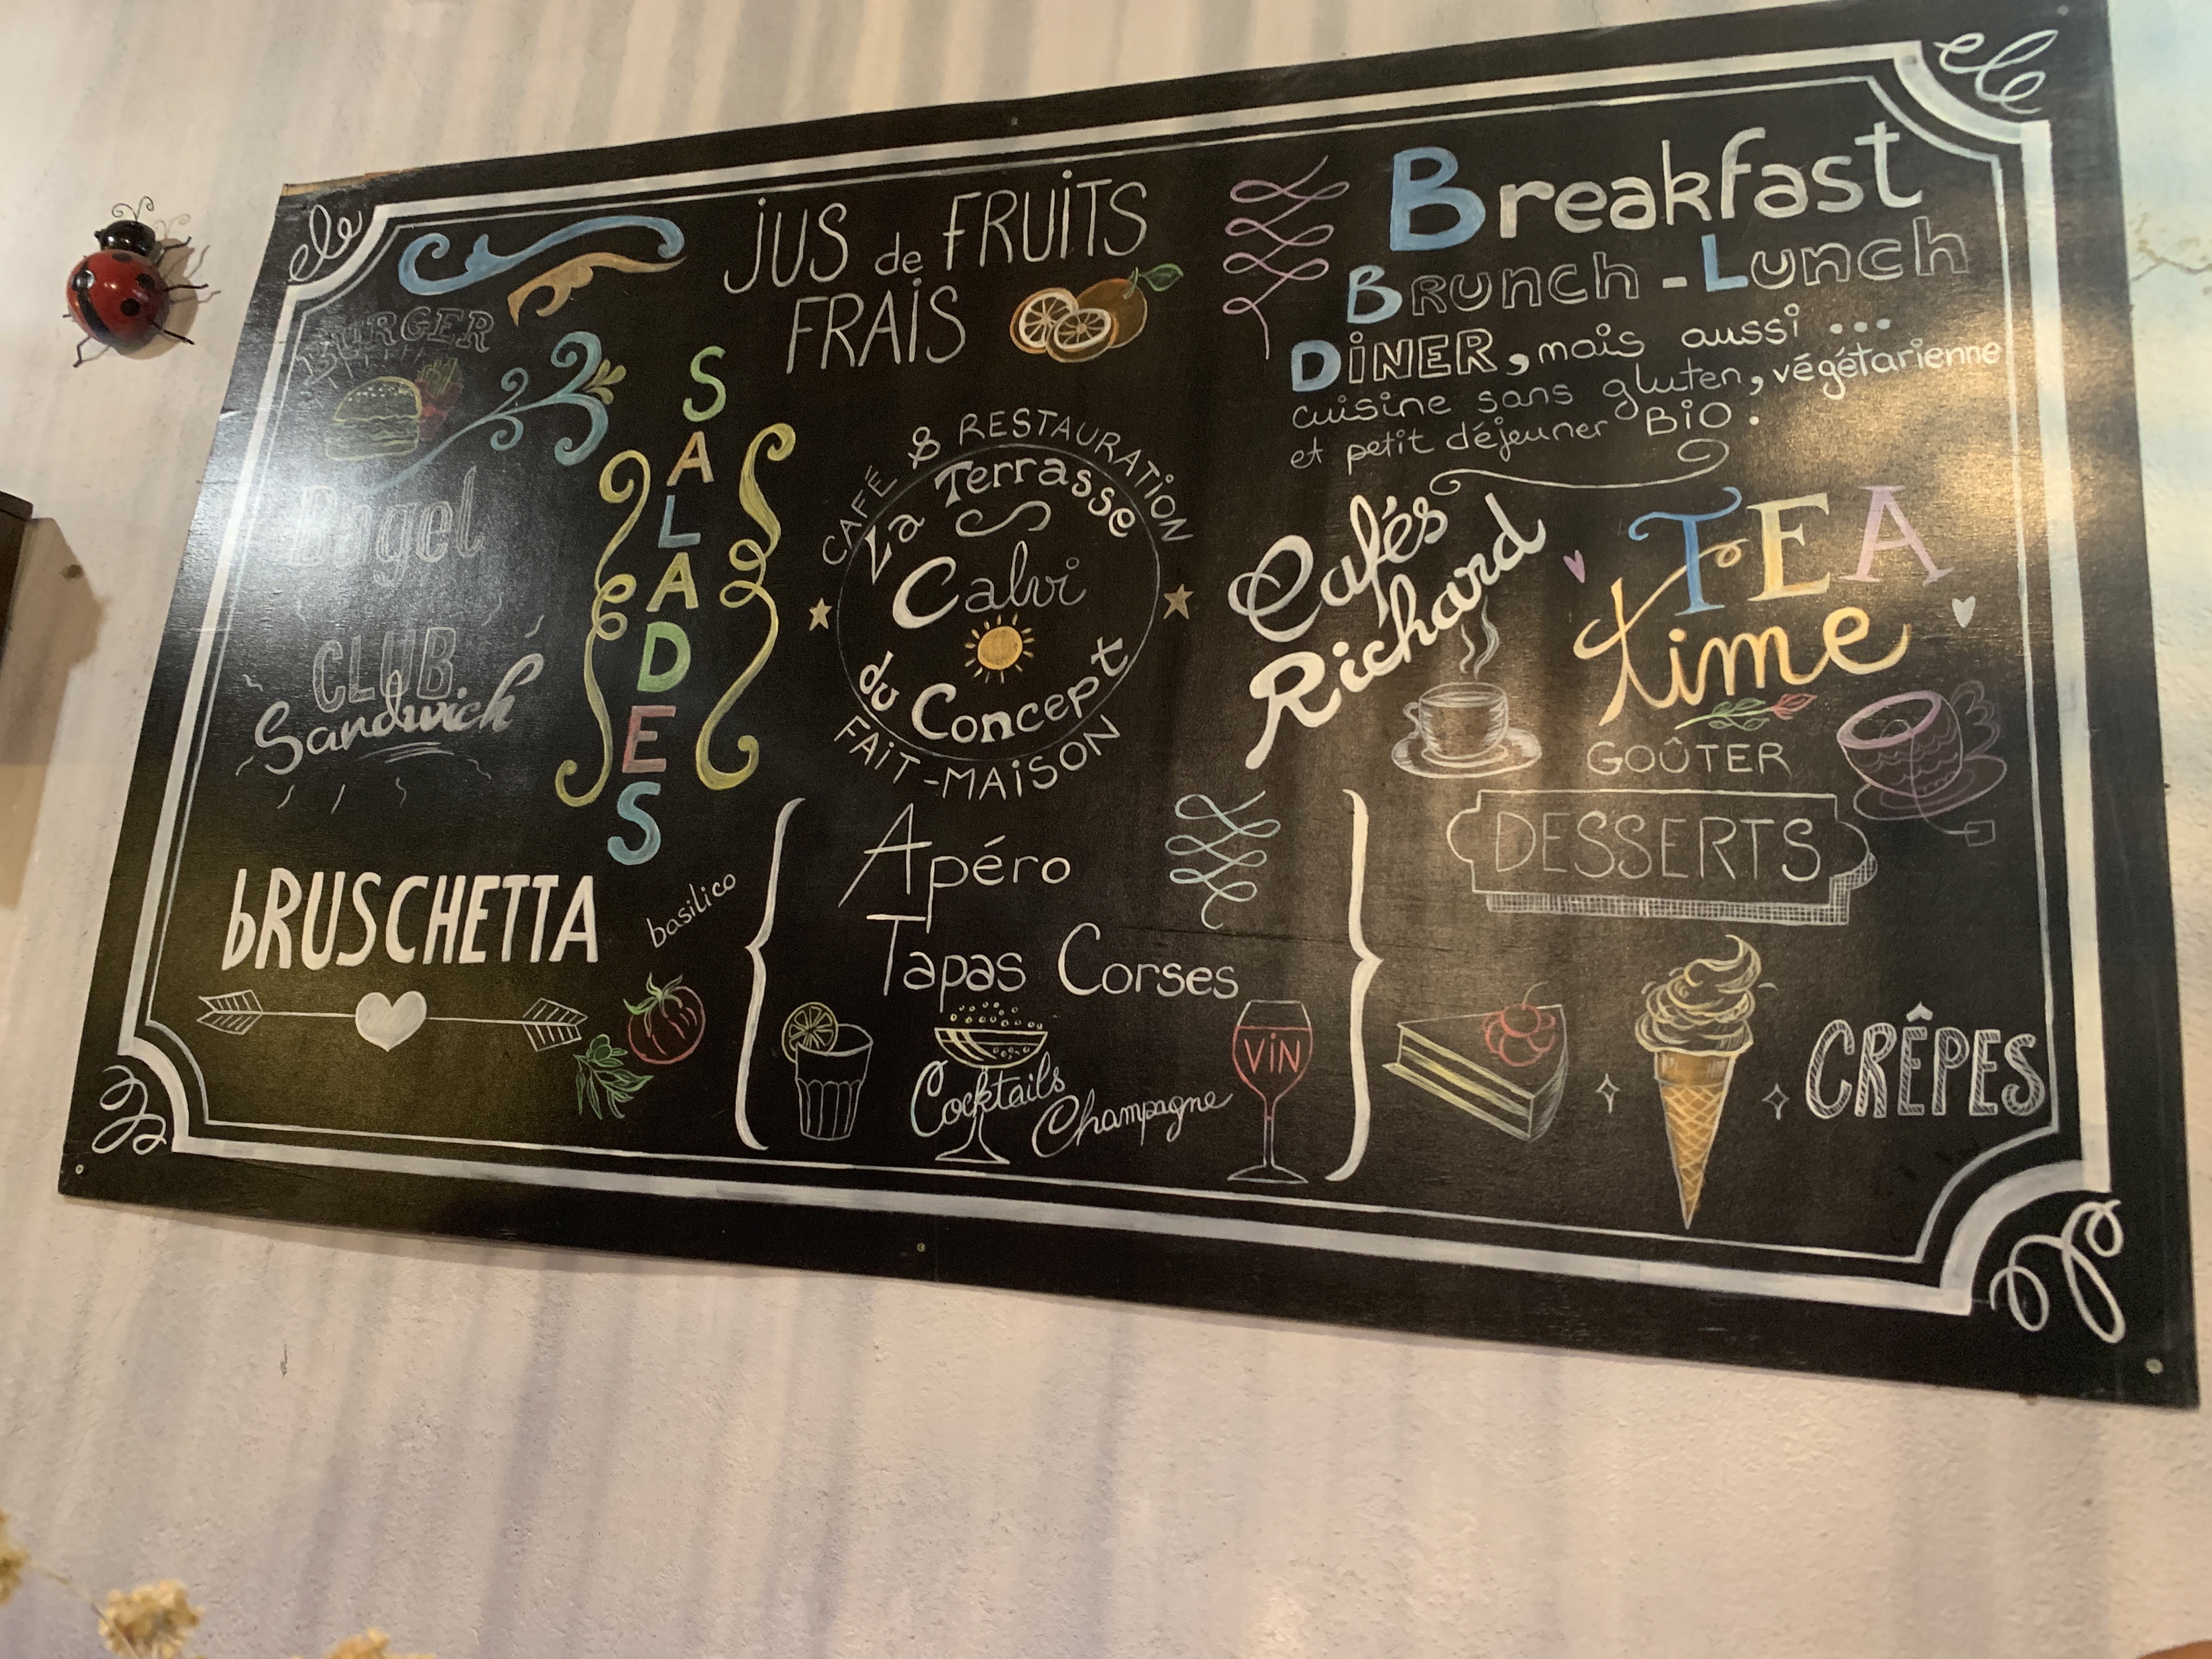 JUS de FRUITS
FRAIS
BURGER
Bagel
CLUB
Sandwich
SALADES
bRUSCHETTA
basilico
CAFÉ & RESTAURATION
La Terrasse
Calvi
du Concept
FAIT-MAISON
Apéro
Tapas Corses
Cocktails
Champagne
VIN
Breakfast
BRUNCH - LUNCH
DINER, mais aussi ...
cuisine sans gluten, végétarienne
et petit déjeuner BIO.
Cafés
Richard
TEA
time
GOÛTER
DESSERTS
CRÊPES